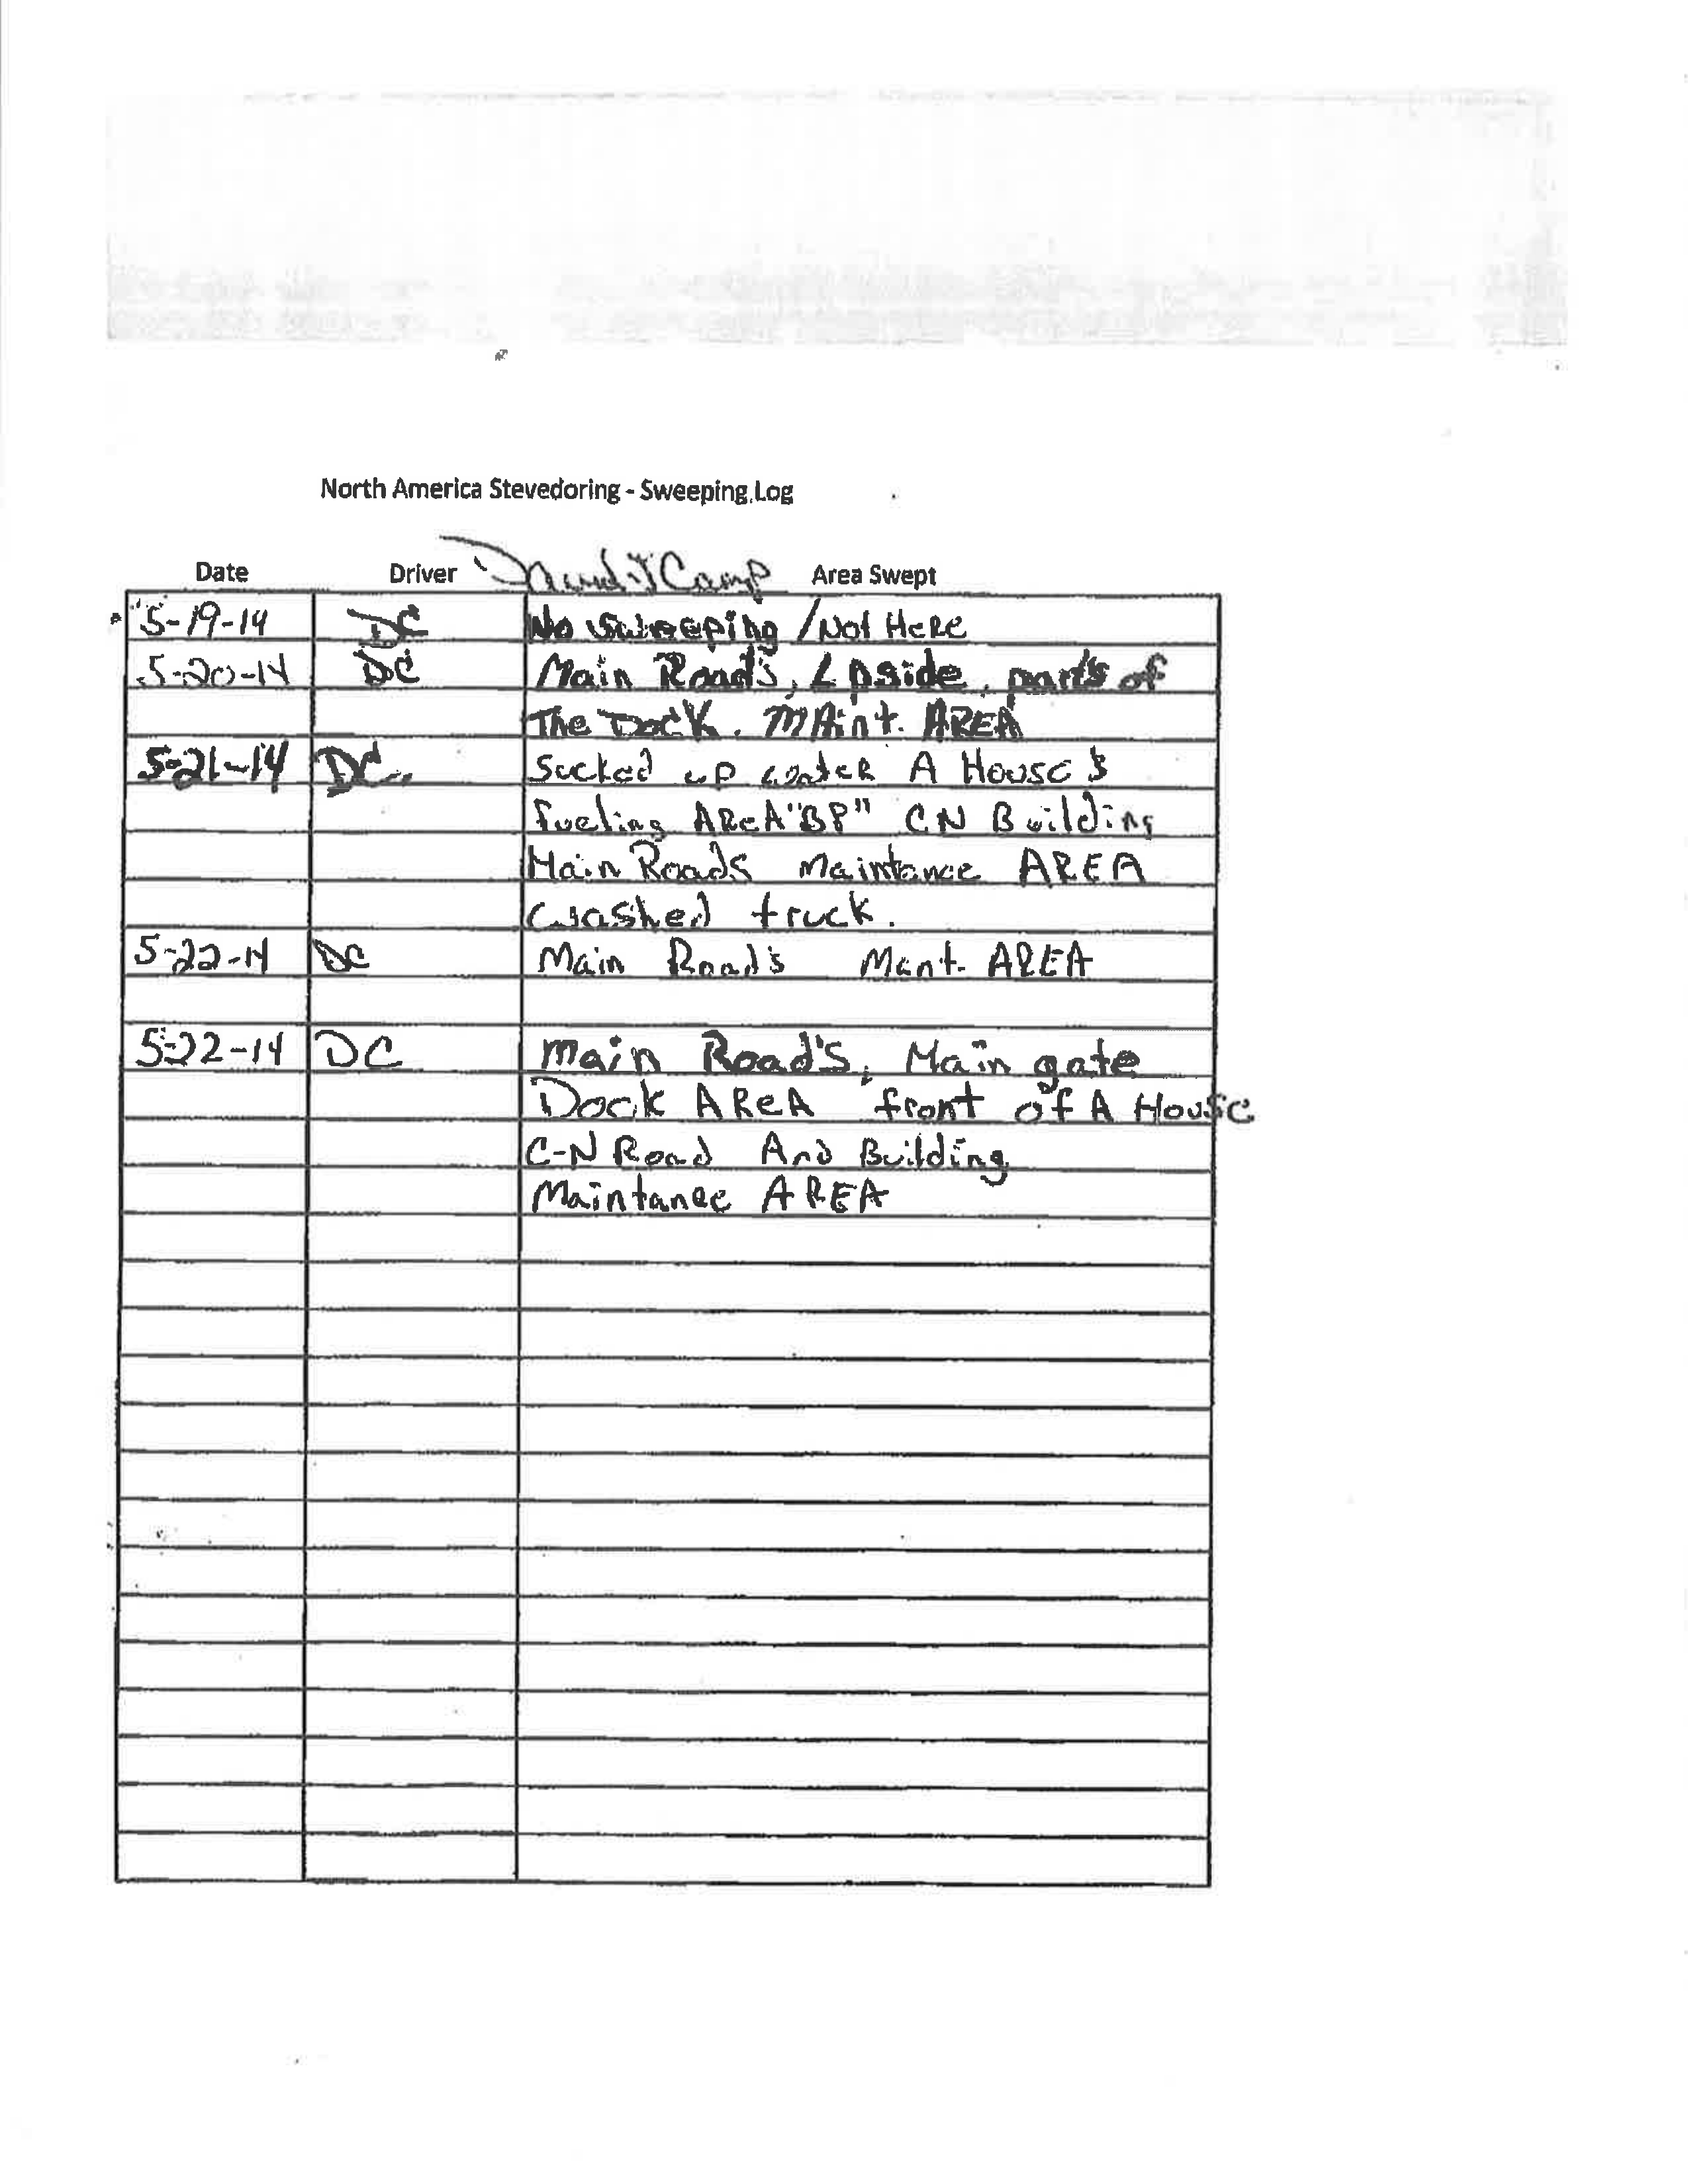 North America Stevedoring - Sweeping Log
Date Driver Camp Area Swept
5-19-14 DC No Sweeping / Not Here
5-20-14 DC Main Road's, side, parts of
The Dock. MAint. AREA
5-21-14 DC Sucked up water A House &
Fueling AReA "BP" CN Building
Main Roads Maintance AREA
Washed truck.
5-22-14 DC Main Road's Mant. AREA
5-22-14 DC Main Road's, Main gate
Dock AReA front of A House
C-N Road And Building
Maintance AREA